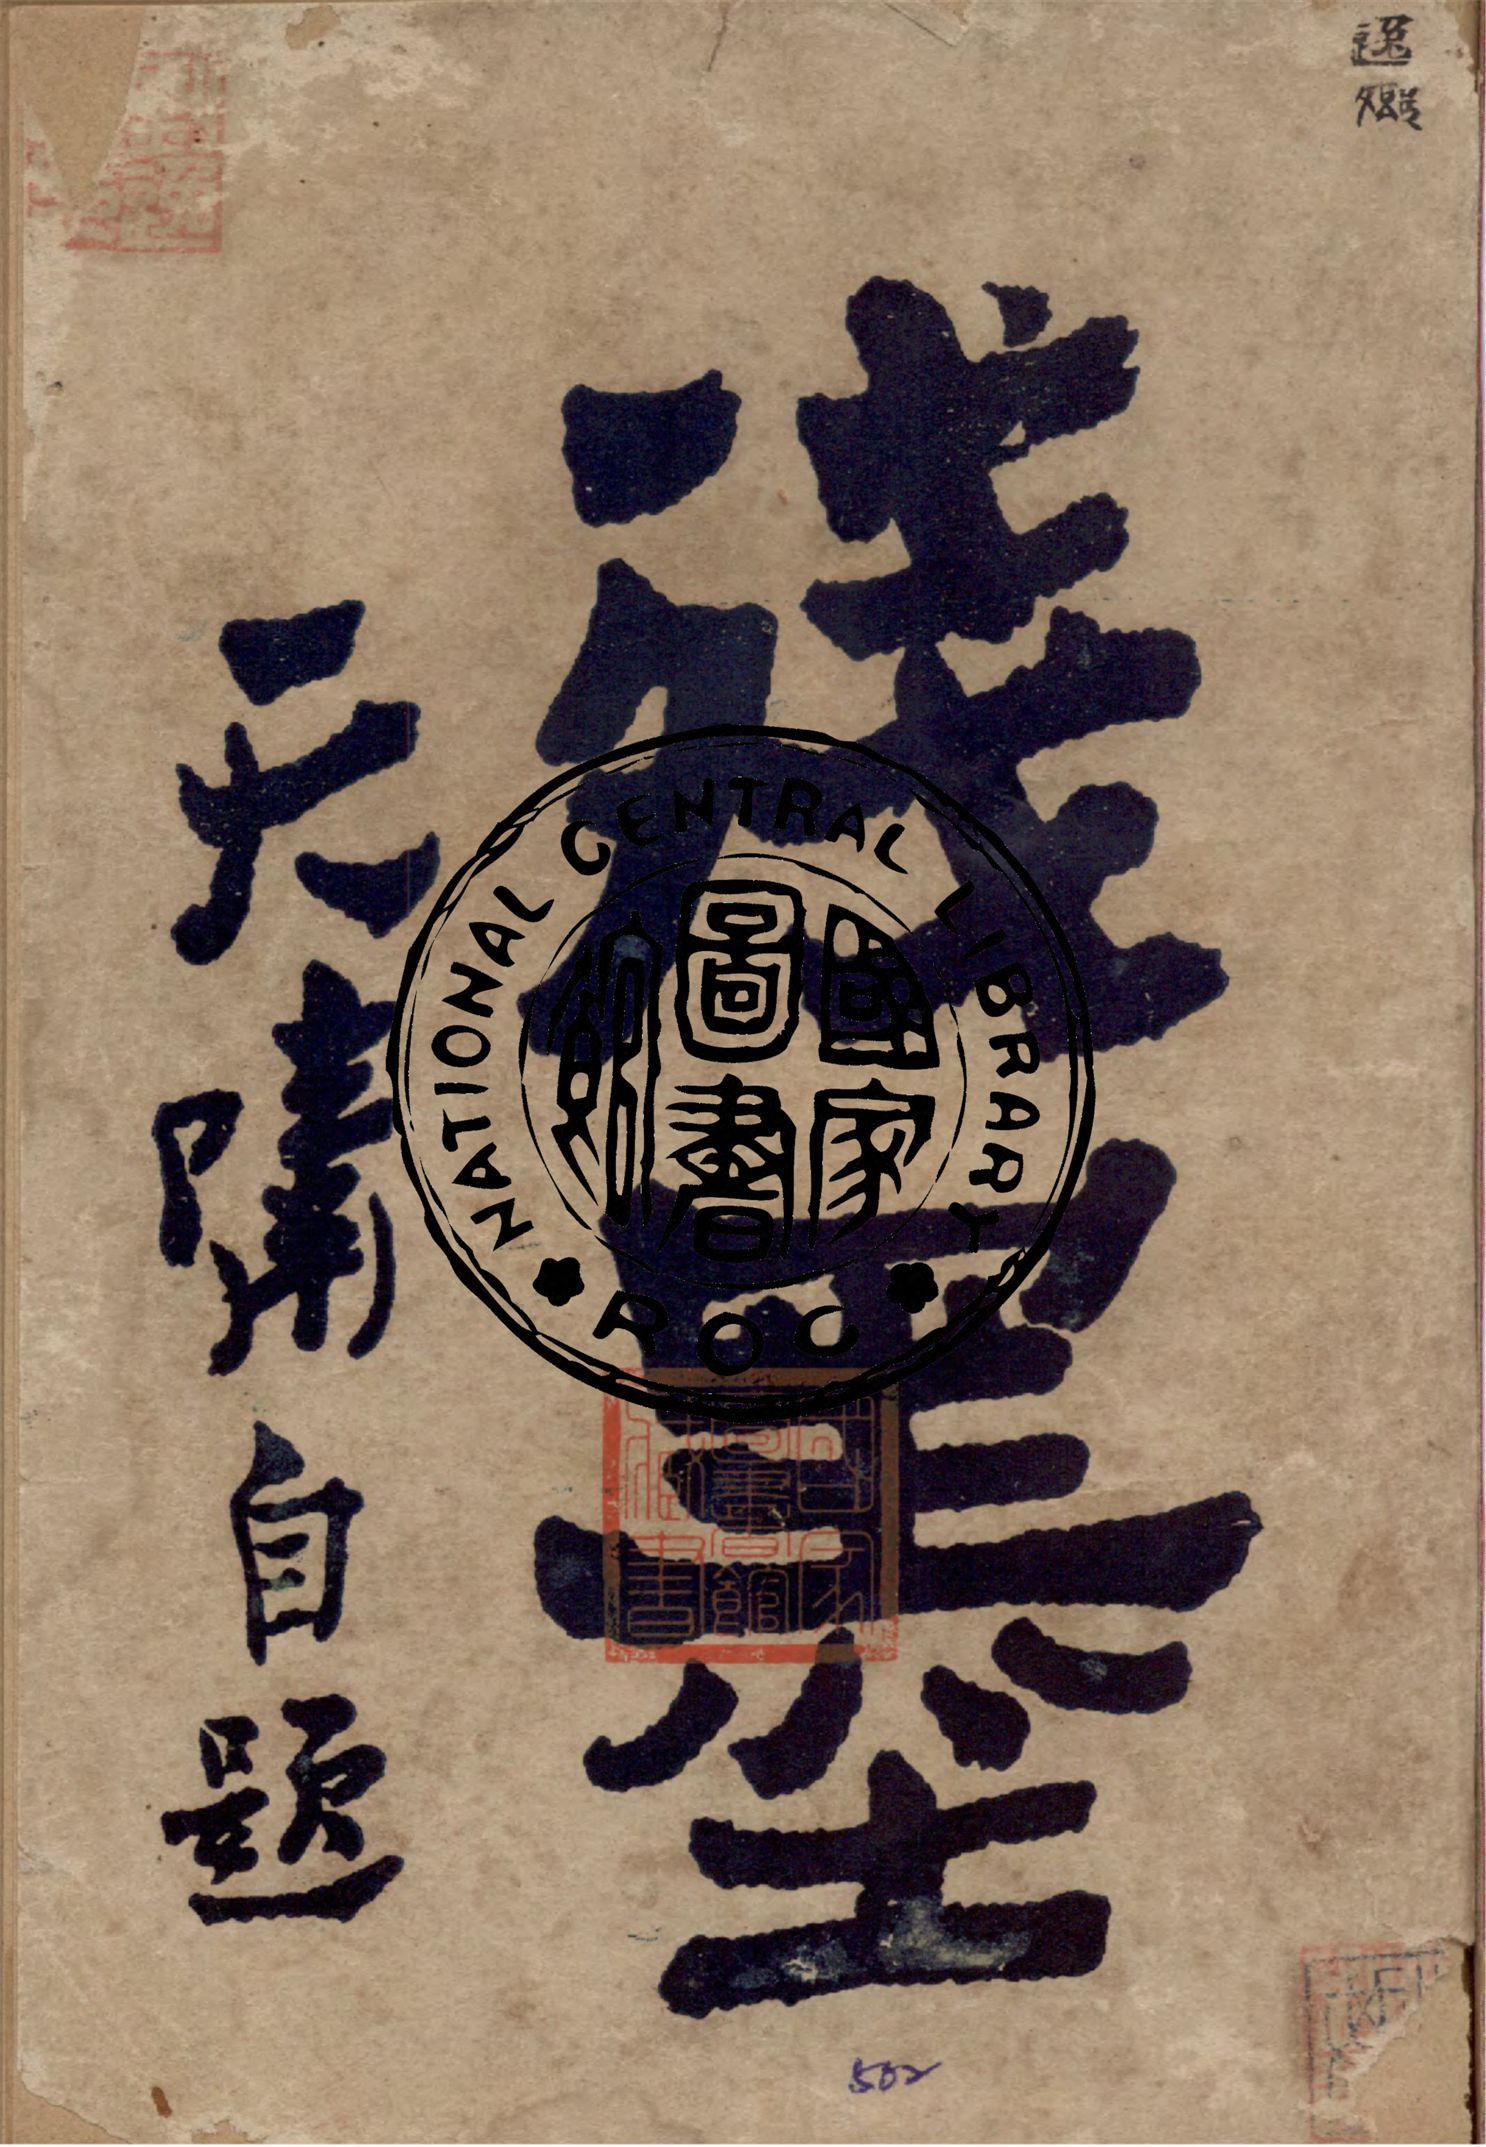 殘墨
天嘯自題
NATIONAL CENTRAL LIBRARY
ROC
國家
圖書
館
國家
圖書館
藏書
502